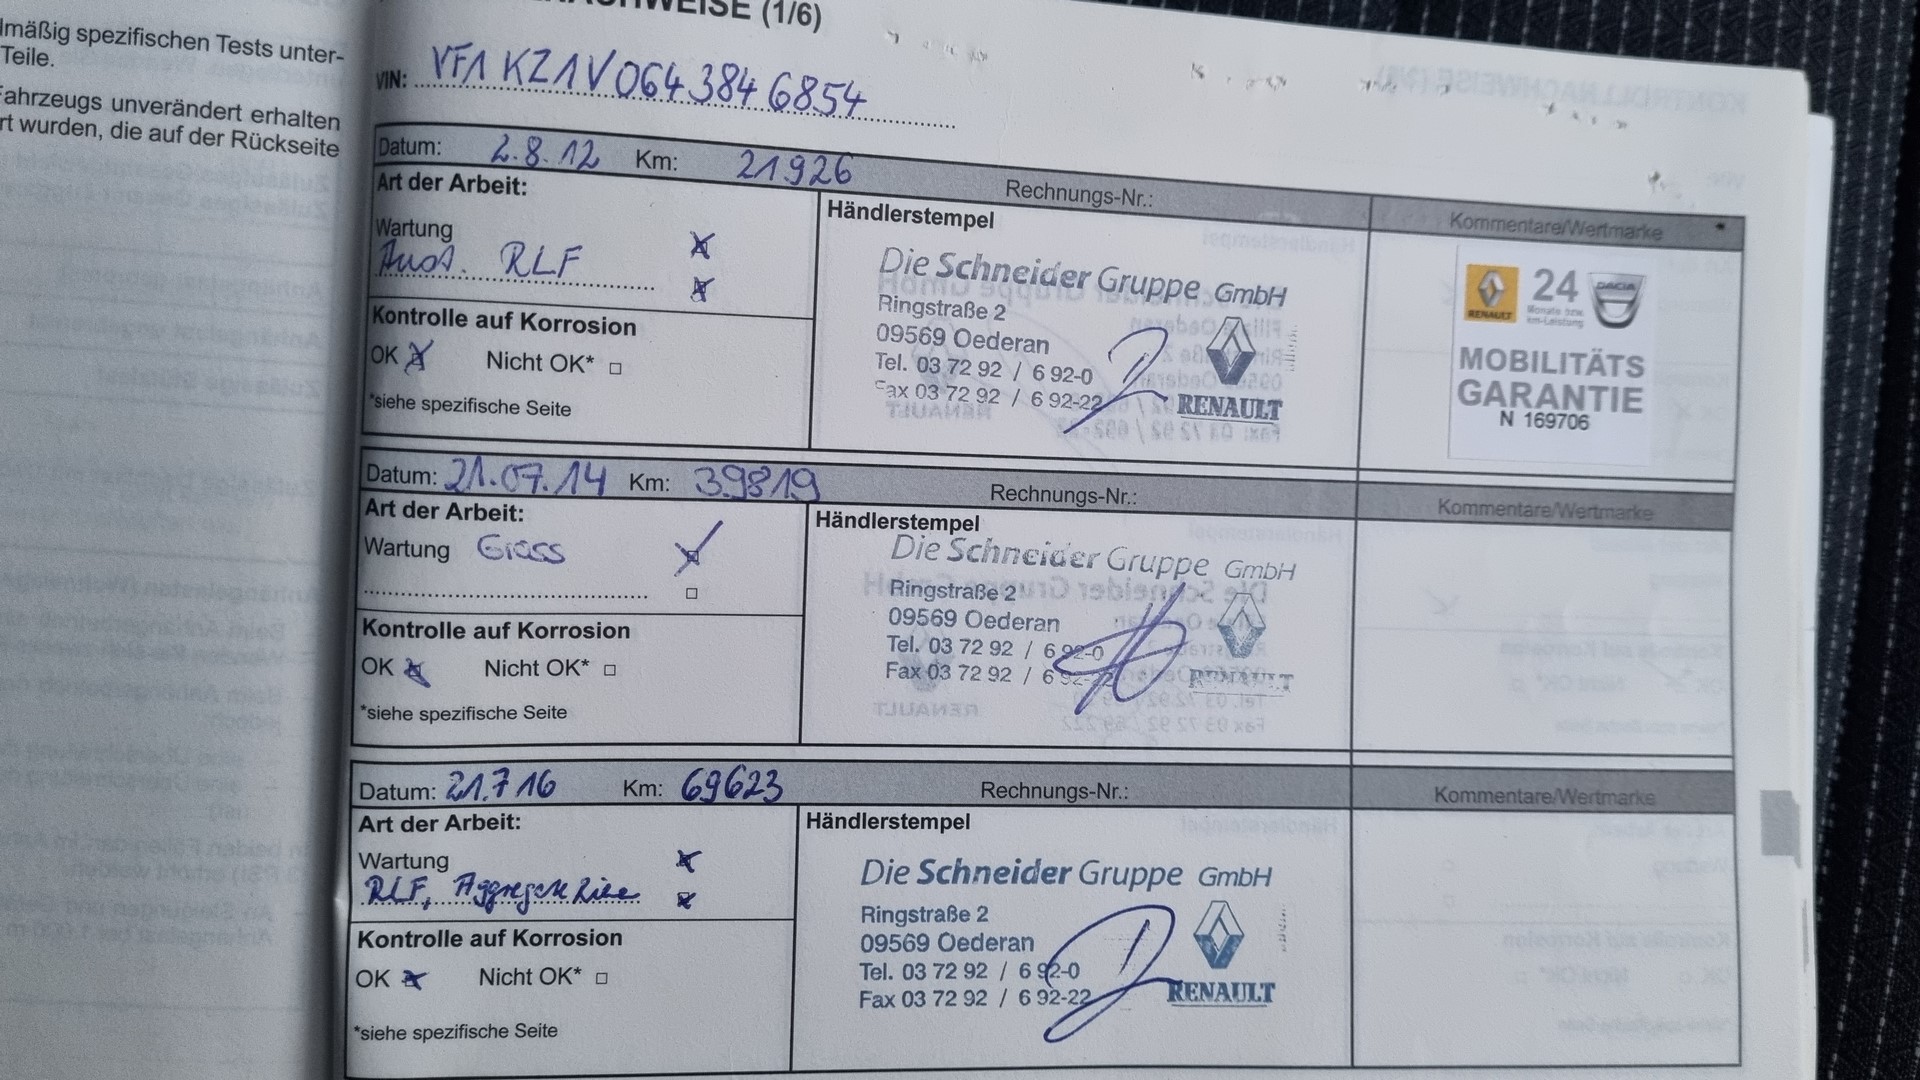 lmäßig spezifischen Tests unter-
Teile.
Fahrzeugs unverändert erhalten
rt wurden, die auf der Rückseite
NACHWEISE (1/6)
VIN: VF1KZ1V0643846854
Datum: 2.8.12 Km: 21926 Rechnungs-Nr.: Kommentare/Wertmarke
Art der Arbeit:
Wartung
RLF
Kontrolle auf Korrosion
OK Nicht OK*
*siehe spezifische Seite
Händlerstempel
Die Schneider Gruppe GmbH
Ringstraße 2
09569 Oederan
Tel. 03 72 92 / 6 92-0
Fax 03 72 92 / 6 92-22
RENAULT
RENAULT
24
Monate bzw.
km-Leistung
DACIA
MOBILITÄTS
GARANTIE
N 169706
Datum: 21.07.14 Km: 39819 Rechnungs-Nr.: Kommentare/Wertmarke
Art der Arbeit:
Wartung
Kontrolle auf Korrosion
OK Nicht OK*
*siehe spezifische Seite
Händlerstempel
Die Schneider Gruppe GmbH
Ringstraße 2
09569 Oederan
Tel. 03 72 92 / 6 92-0
Fax 03 72 92 / 6 92-22
RENAULT
Datum: 21.7.16 Km: 69623 Rechnungs-Nr.: Kommentare/Wertmarke
Art der Arbeit:
Wartung
RLF,
Kontrolle auf Korrosion
OK Nicht OK*
*siehe spezifische Seite
Händlerstempel
Die Schneider Gruppe GmbH
Ringstraße 2
09569 Oederan
Tel. 03 72 92 / 6 92-0
Fax 03 72 92 / 6 92-22
RENAULT